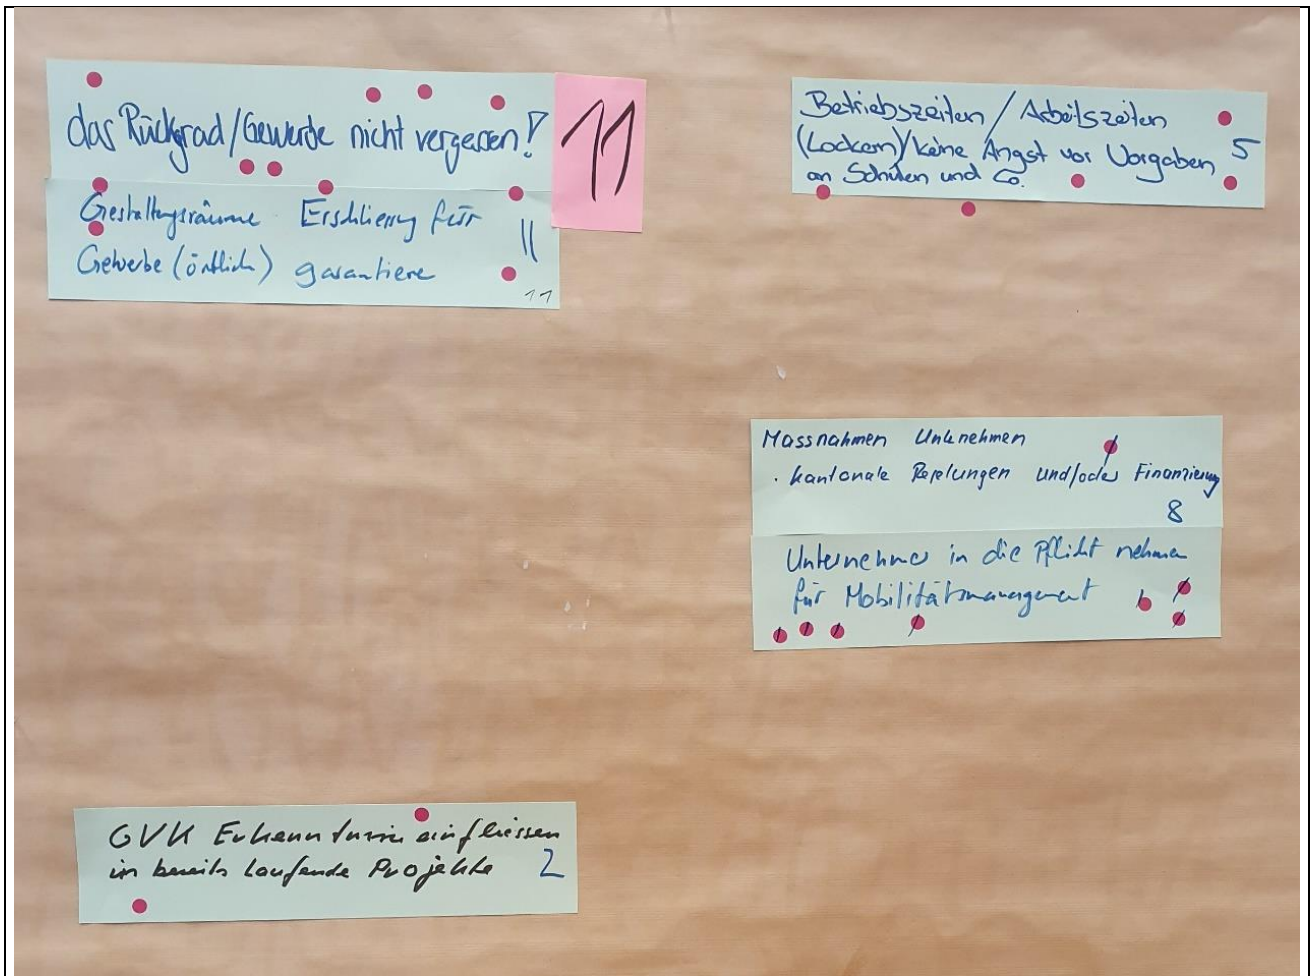 das Rückgrad/Gewerbe nicht vergessen!
11
Gestaltungsräume Erschliessung für
Gewerbe (örtlich) garantiere
11
11
Betriebszeiten / Arbeitszeiten
(Lockern)/keine Angst vor Vorgaben
an Schulen und Co.
5
Massnahmen Unternehmen
· kantonale Regelungen und/oder Finanzierung
8
Unternehmer in die Pflicht nehmen
für Mobilitätsmanagement
GVK Erkenntnisse einfliessen
in bereits laufende Projekte 2